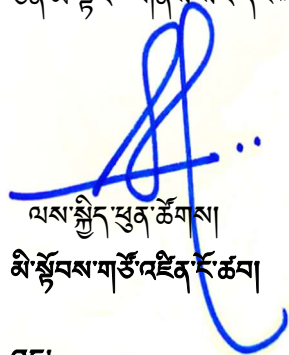 ལས་སྐྱིད་ཕུན་ཚོགས།
མི་སྟོབས་གཙོ་འཛིན་ངོ་ཚབ།